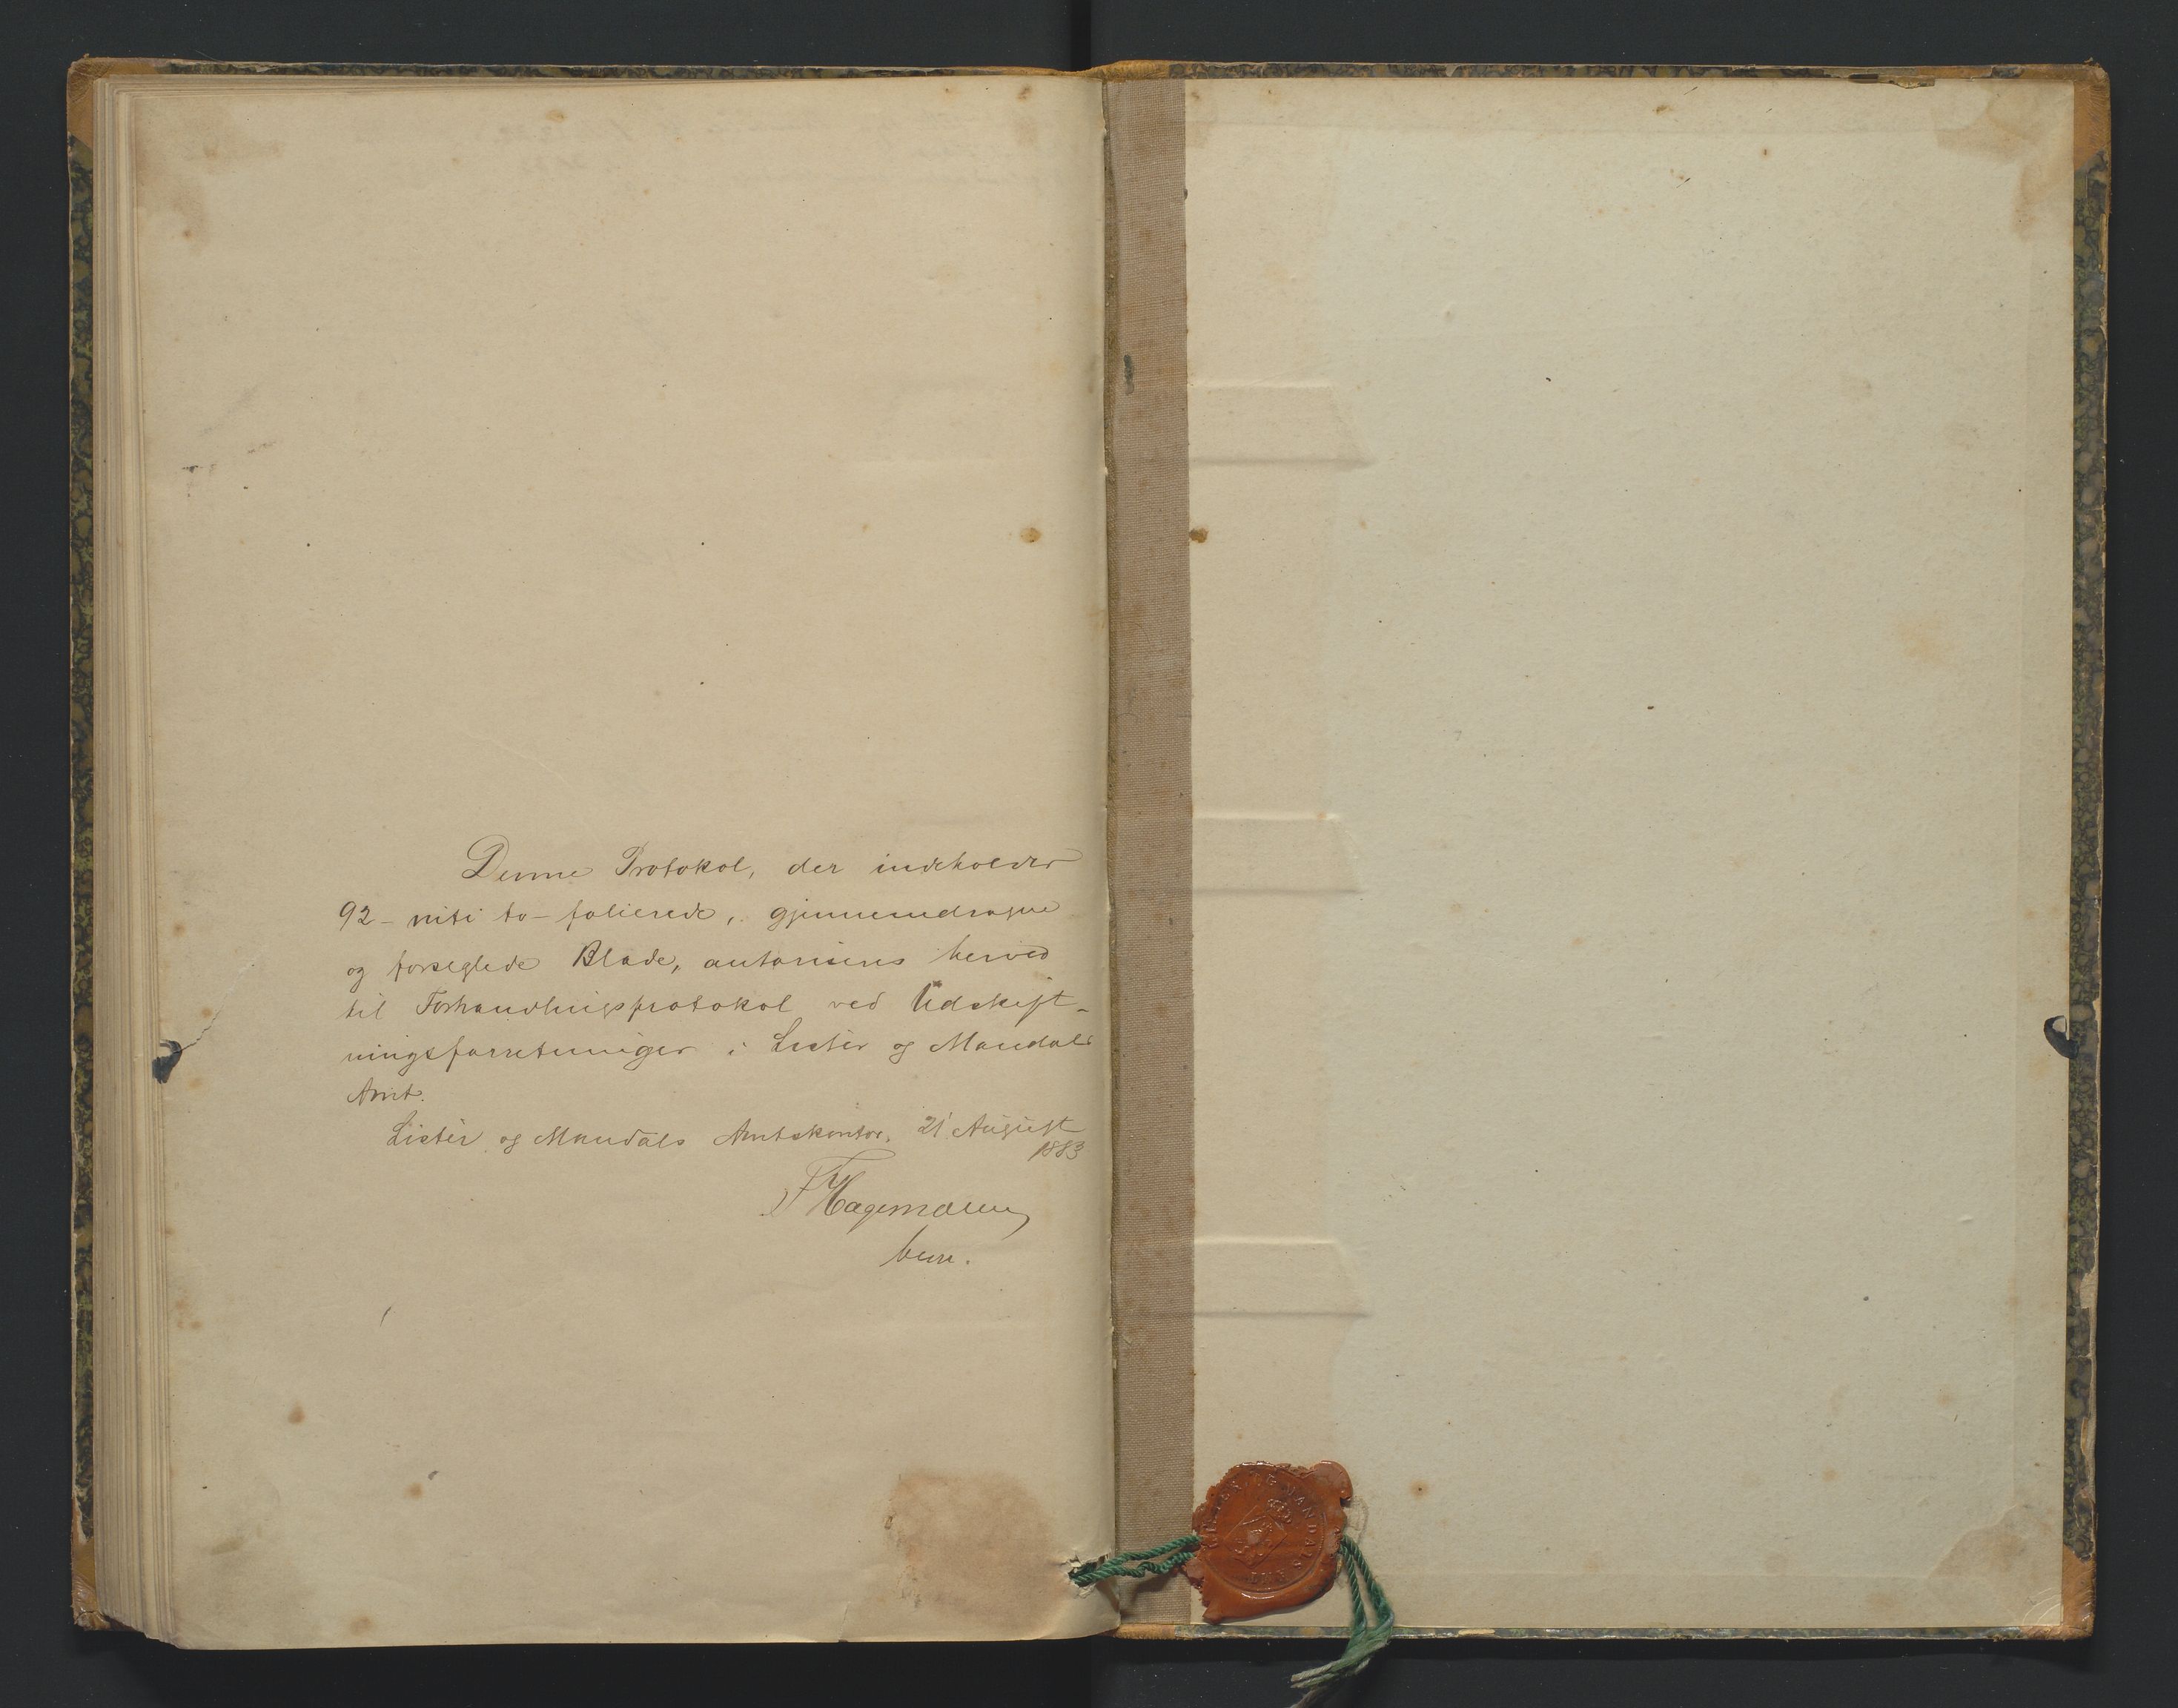 Denne Protokol, der indeholder
92 - niti to - folierede, gjennemdragne
og forseglede Blade, autoriseres herved
til Forhandlingsprotokol ved Udskift-
ningsforretninger i Lister og Mandals
Amt.
Lister og Mandals Amtskontor, 21 August
1883
Hagemann
MANDALS